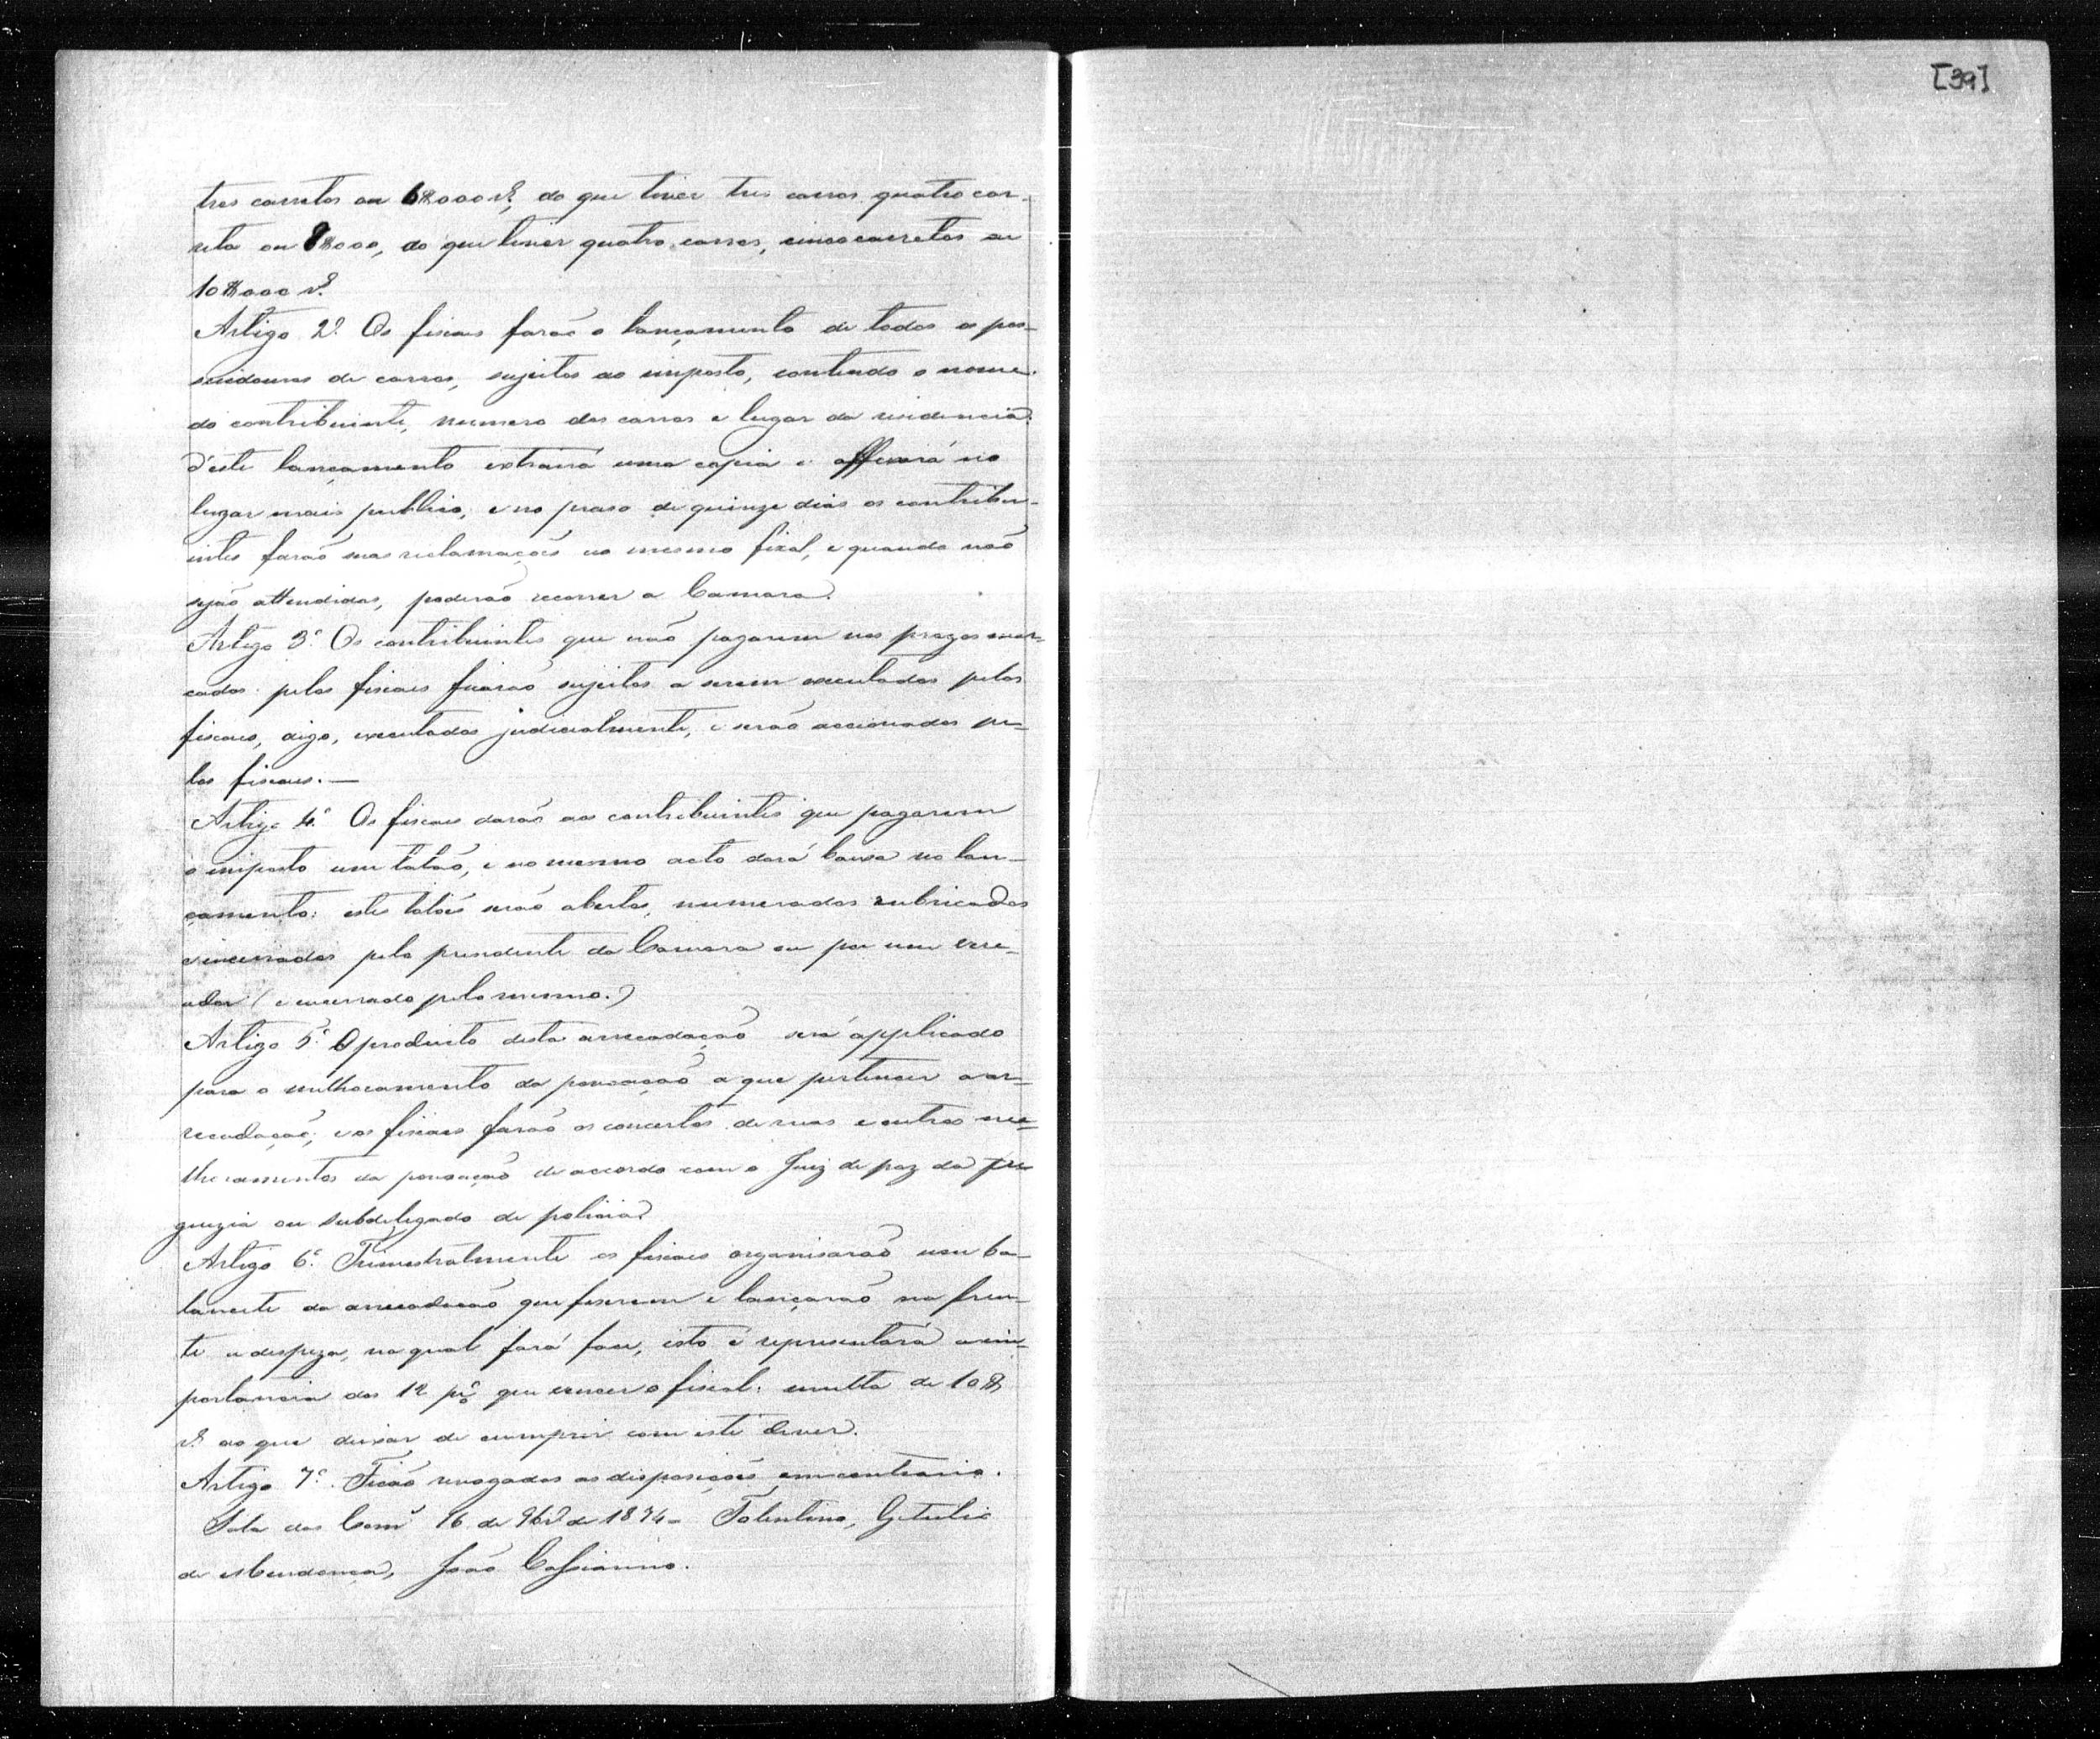 [39]
tres carretos ou 6$000 rs, do que tiver tres carros quatro car-
retos ou 8$000, do que tiver quatro carros, cinco carretos ou
10$000 rs.
Artigo 2º. Os fiscaes farão o lançamento de todos os pos-
suidouros de carros, sujeitos ao imposto, contendo o nome
do contribuinte, numero dos carros e lugar da residencia.
D'este lançamento extrairá uma copia e affixará no
lugar mais publico, e no praso de quinze dias os contribu-
intes farão suas reclamações ao mesmo fiscal, e quando não
sejão attendidos, poderão recorrer a Camara.
Artigo 3º. Os contribuintes que não pagarem nos prazos mar-
cados pelos fiscaes ficarão sujeitos a serem executados pelos
fiscaes, digo, executados judicialmente, e serão accionados pe-
los fiscaes.—
Artigo 4º. Os fiscaes darão aos contribuintes que pagarem
o imposto um talão, e no mesmo acto dará baixa no lan-
çamento: estes talões serão abertos, numerados rubricados
e incerrados pelo presidente da Camara ou por um vere-
ador (e encerrado pelo mesmo.)
Artigo 5º. O producto desta arrecadação será applicado
para o milhoramento da povoação a que pertencer a ar-
recadação; e os fiscaes farão os concertos de ruas e outros me-
lhoramentos da povoação de accordo com o Juiz de paz da fre
guezia ou subdelegado de policia.
Artigo 6º. Trimestralmente os fiscaes organisarão um ba-
lancete da arrecadação que fiserem e lançarão na fren-
te a despeza, na qual fará face, isto é representará a im-
portancia dos 12 p% que vencer o fiscal: multa de 10$
rs ao que deixar de cumprir com este dever.
Artigo 7º. Ficão revogadas as disposições em contrario.
Sala das Comm 16 de 9brº de 1874 = Tolentino, Getulio
de Mendonça, João Cassianno.